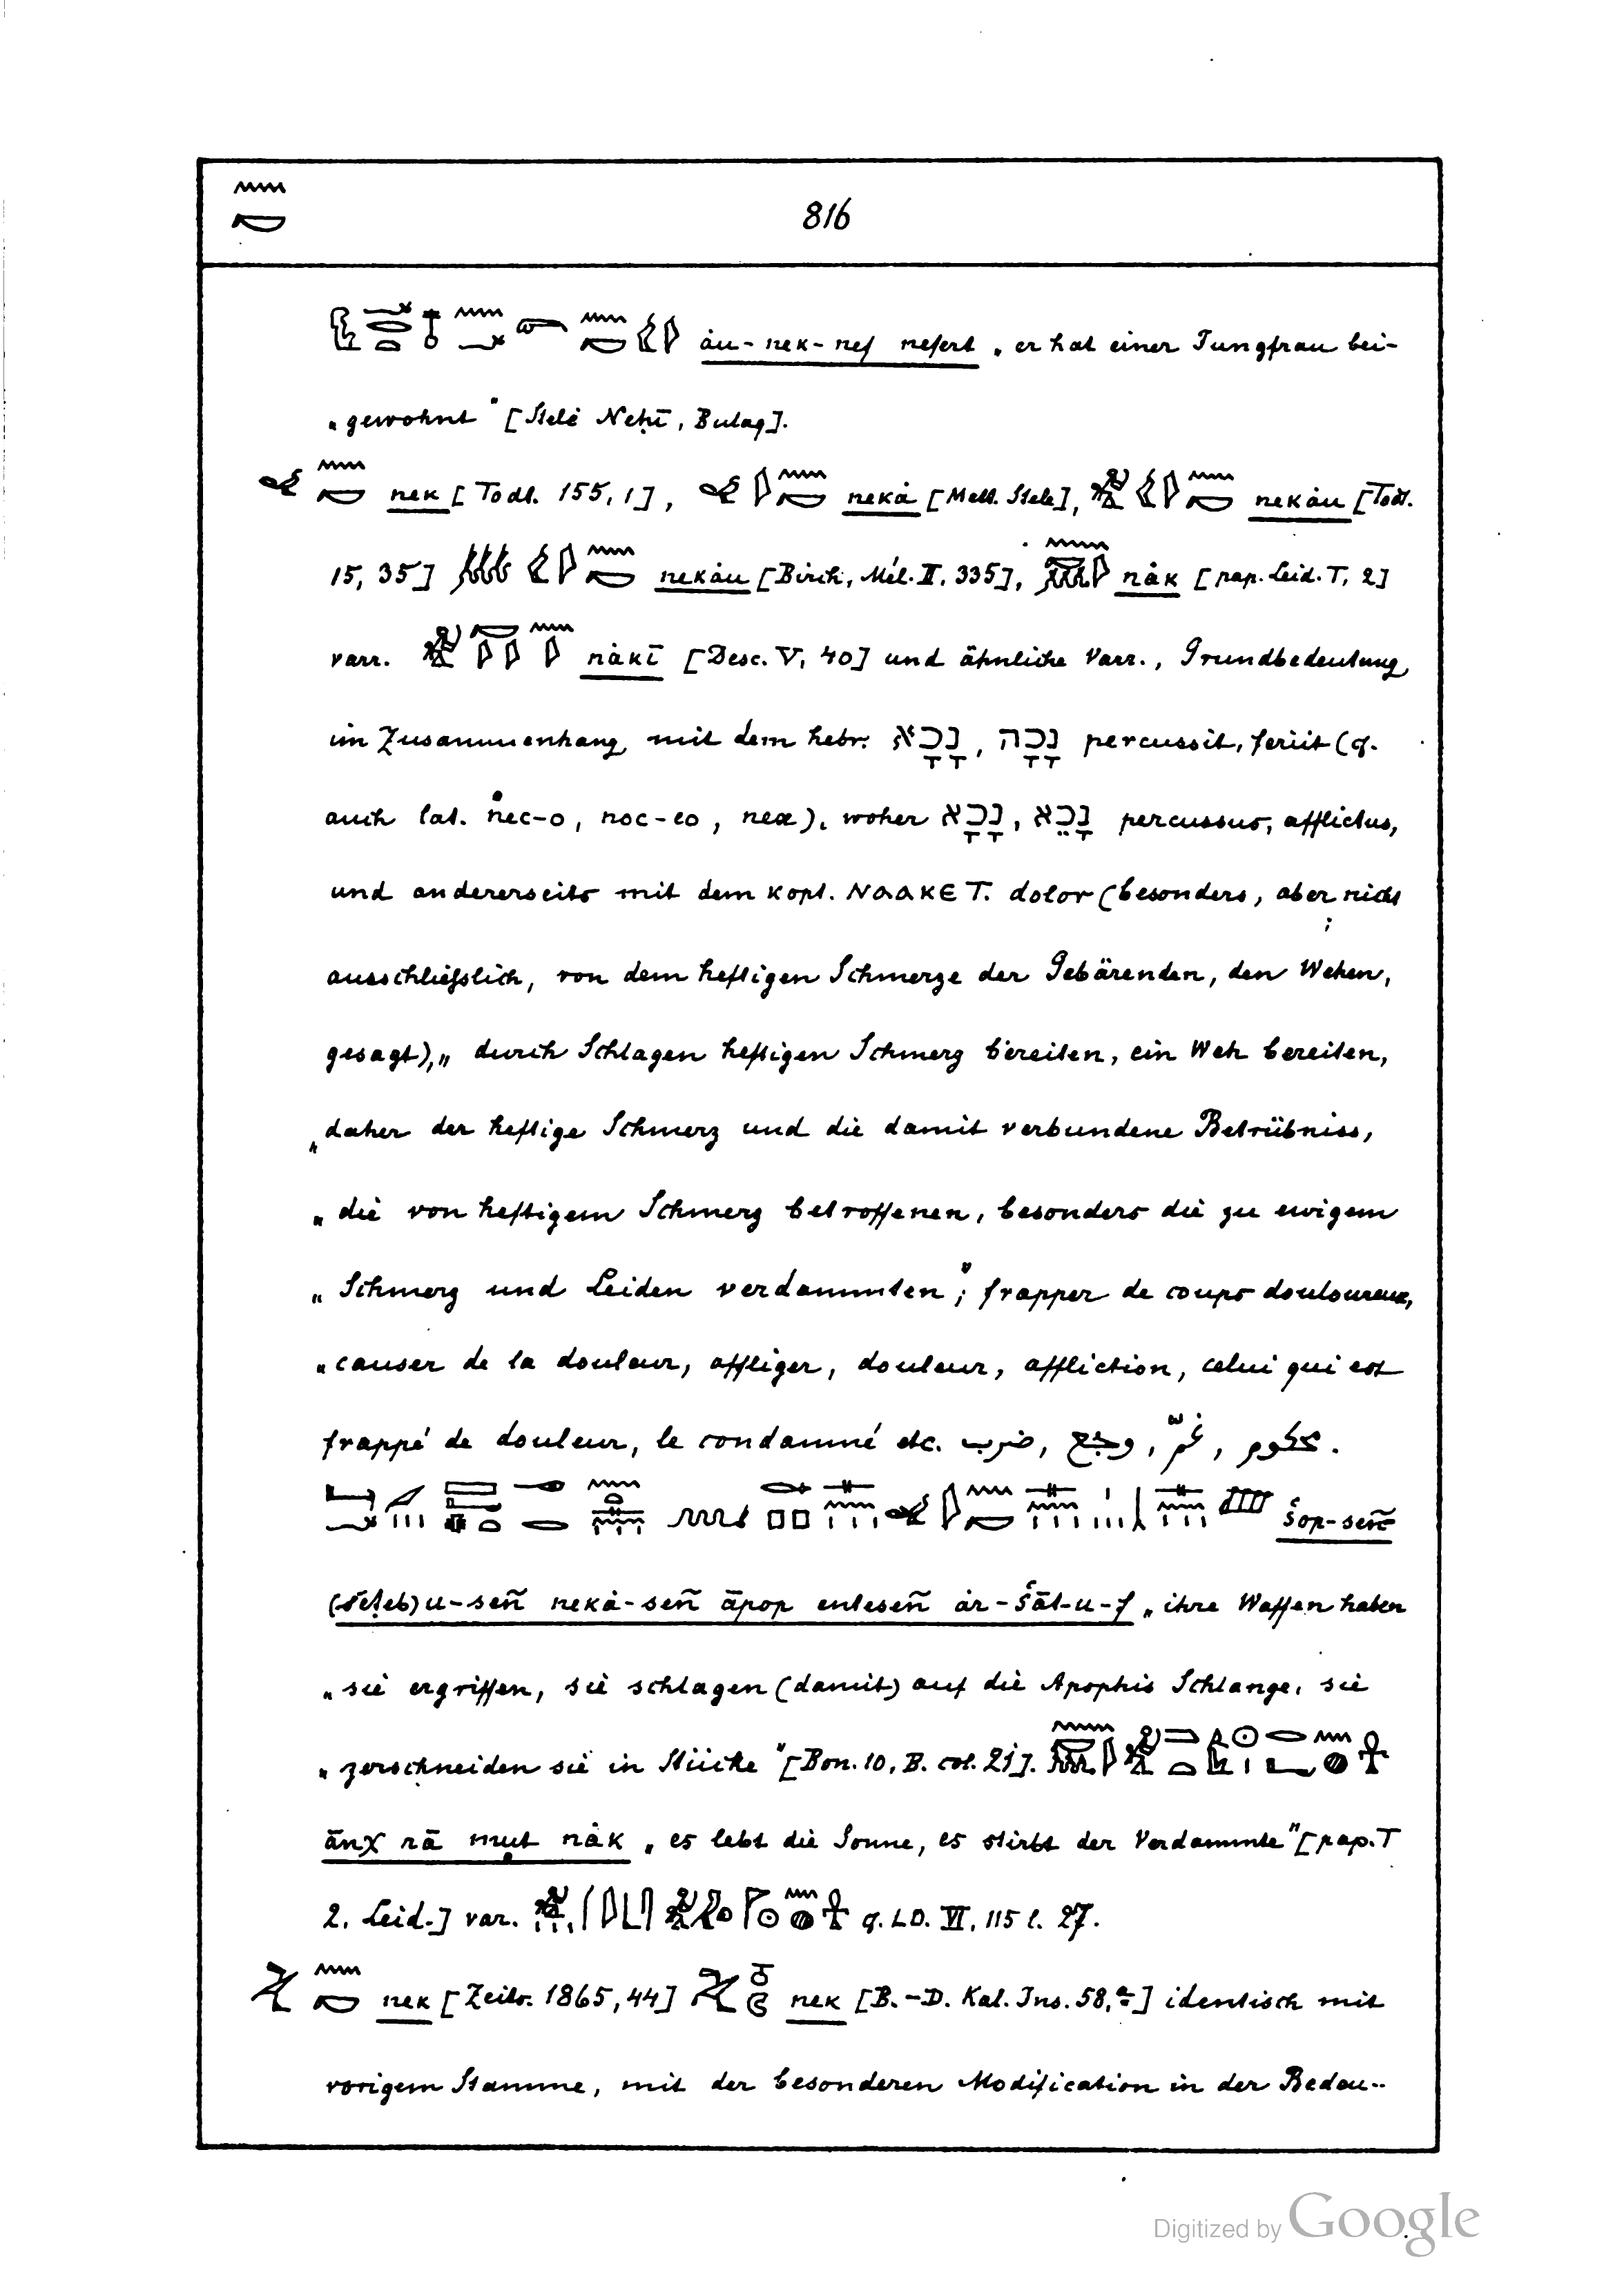 816
ȧu-nek-nef nefert „er hat einer Jungfrau bei-
„gewohnt" [Stele Neḥī, Bulaq].
nek [Todt. 155, 1], nekȧ [Mett. Stele], nekȧu [Todt.
15, 35] nekȧu [Birch, Mél. II, 335], nȧk [pap. Leid. T, 2]
varr. nȧkī [Desc. V, 40] und ähnliche Varr., Grundbedeutung
im Zusammenhang mit dem hebr. נָכָא, נָכָה percussit, feriit (cf.
auch lat. nec-o, noc-eo, nex), woher נָכָא, נָכֵא percussus, afflictus,
und andererseits mit dem kopt. ⲚⲀⲀⲔⲈ T. dolor (besonders, aber nicht
ausschließlich, von dem heftigen Schmerze der Gebärenden, den Wehen,
gesagt), „durch Schlagen heftigen Schmerz bereiten, ein Weh bereiten,
„daher der heftige Schmerz und die damit verbundene Betrübniss,
„die von heftigem Schmerz betroffenen, besonders die zu ewigem
„Schmerz und Leiden verdammten"; frapper de coups douloureux,
„causer de la douleur, affliger, douleur, affliction, celui qui est
frappé de douleur, le condamné etc. ضرب, وجع, غمّ, محكوم.
šop-señ
u-señ nekȧ-señ āpop enteseñ ȧr-šāt-u-f „ihre Waffen haben
„sie ergriffen, sie schlagen (damit) auf die Apophis Schlange, sie
„zerschneiden sie in Stücke" [Bon. 10, B. col. 2].
ānχ rā mut nȧk „es lebt die Sonne, es stirbt der Verdammte" [pap. T
2. Leid.] var. cf. LD. VI, 115 l. 27.
nek [Zeits. 1865, 44] nek [B.-D. Kal. Ins. 58, ] identisch mit
vorigem Stamme, mit der besonderen Modification in der Bedeu-
Digitized by Google